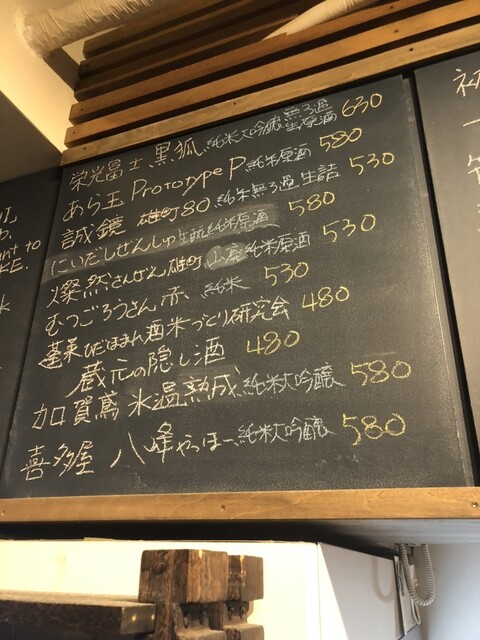 栄光冨士 黒狐 純米大吟醸 無ろ過 生原酒 630
あら玉 Prototype P 純米原酒 580
誠鏡 雄町80 純米無ろ過生詰 530
にいだしぜんしゅ 生酛純米原酒 580
燦然 さんぜん 雄町 山廃純米原酒 530
むつごろうさん 赤 純米 530
蓬莱 ひだほまれ 酒米づくり研究会 480
蔵元の隠し酒 480
加賀鳶 氷温熟成 純米大吟醸 580
喜多屋 八峰 やっほー 純米大吟醸 580
ant to
KE.
初